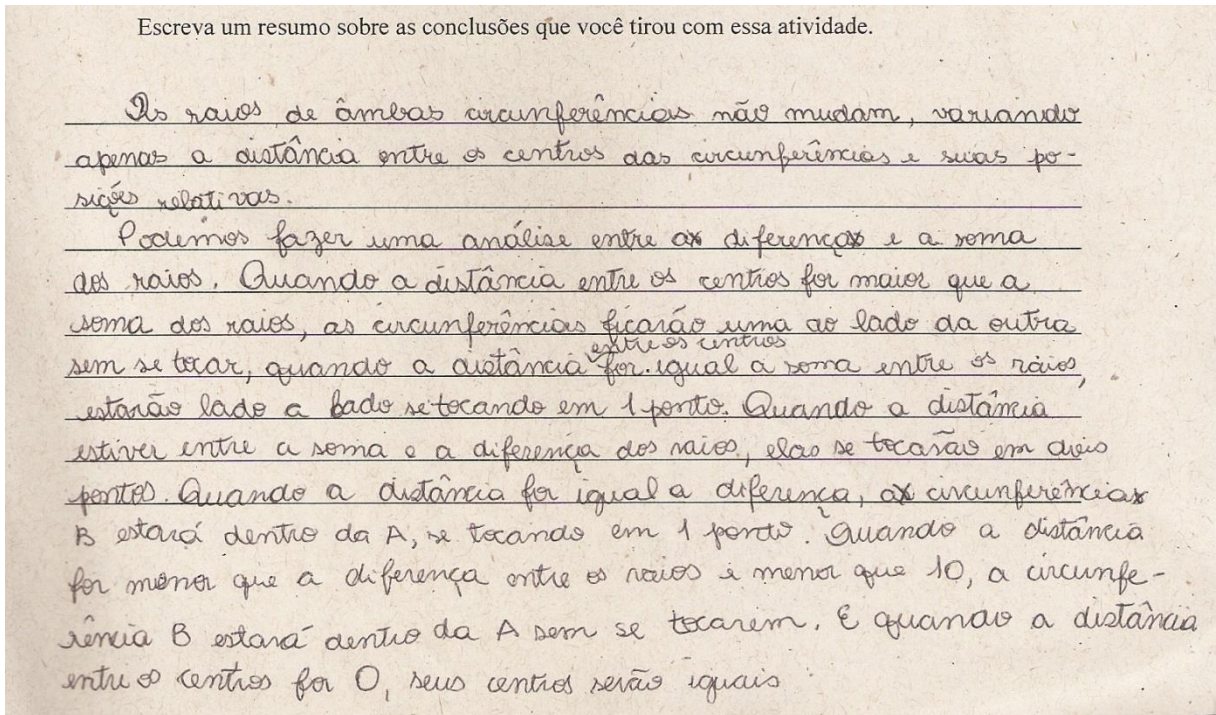 Escreva um resumo sobre as conclusões que você tirou com essa atividade.
Os raios de âmbas circunferências não mudam, variando
apenas a distância entre os centros das circunferências e suas po-
sições relativas.
Podemos fazer uma análise entre a diferença e a soma
dos raios. Quando a distância entre os centros for maior que a
soma dos raios, as circunferências ficarão uma ao lado da outra
sem se tocar, quando a distância entre os centros for igual a soma entre os raios,
estarão lado a lado se tocando em 1 ponto. Quando a distância
estiver entre a soma e a diferença dos raios, elas se tocarão em dois
pontos. Quando a distância for igual a diferença, a circunferência
B estará dentro da A, se tocando em 1 ponto. Quando a distância
for menor que a diferença entre os raios e menor que 10, a circunfe-
rência B estará dentro da A sem se tocarem. E quando a distância
entre os centros for 0, seus centros serão iguais.